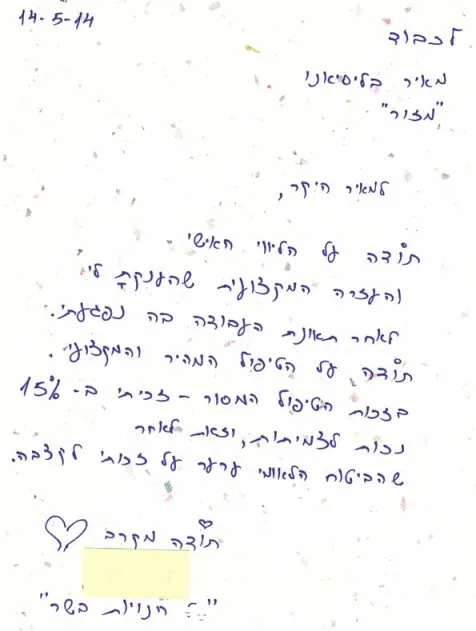 14-5-14
לכבוד
מאיר בליסיאנו
"מזור"
למאיר היקר,
תודה על הליווי האישי
והעזרה המקצועית שהענקת לי
לאחר תאונת העבודה בה נפגעתי.
תודה על הטיפול המהיר והמקצועי.
בזכות הטיפול המסור – זכיתי ב- 15%
נכות לצמיתות, וזאת לאחר
שהביטוח הלאומי ערער על זכותי לקצבה.
תודה מקרב
חנויות בשר"